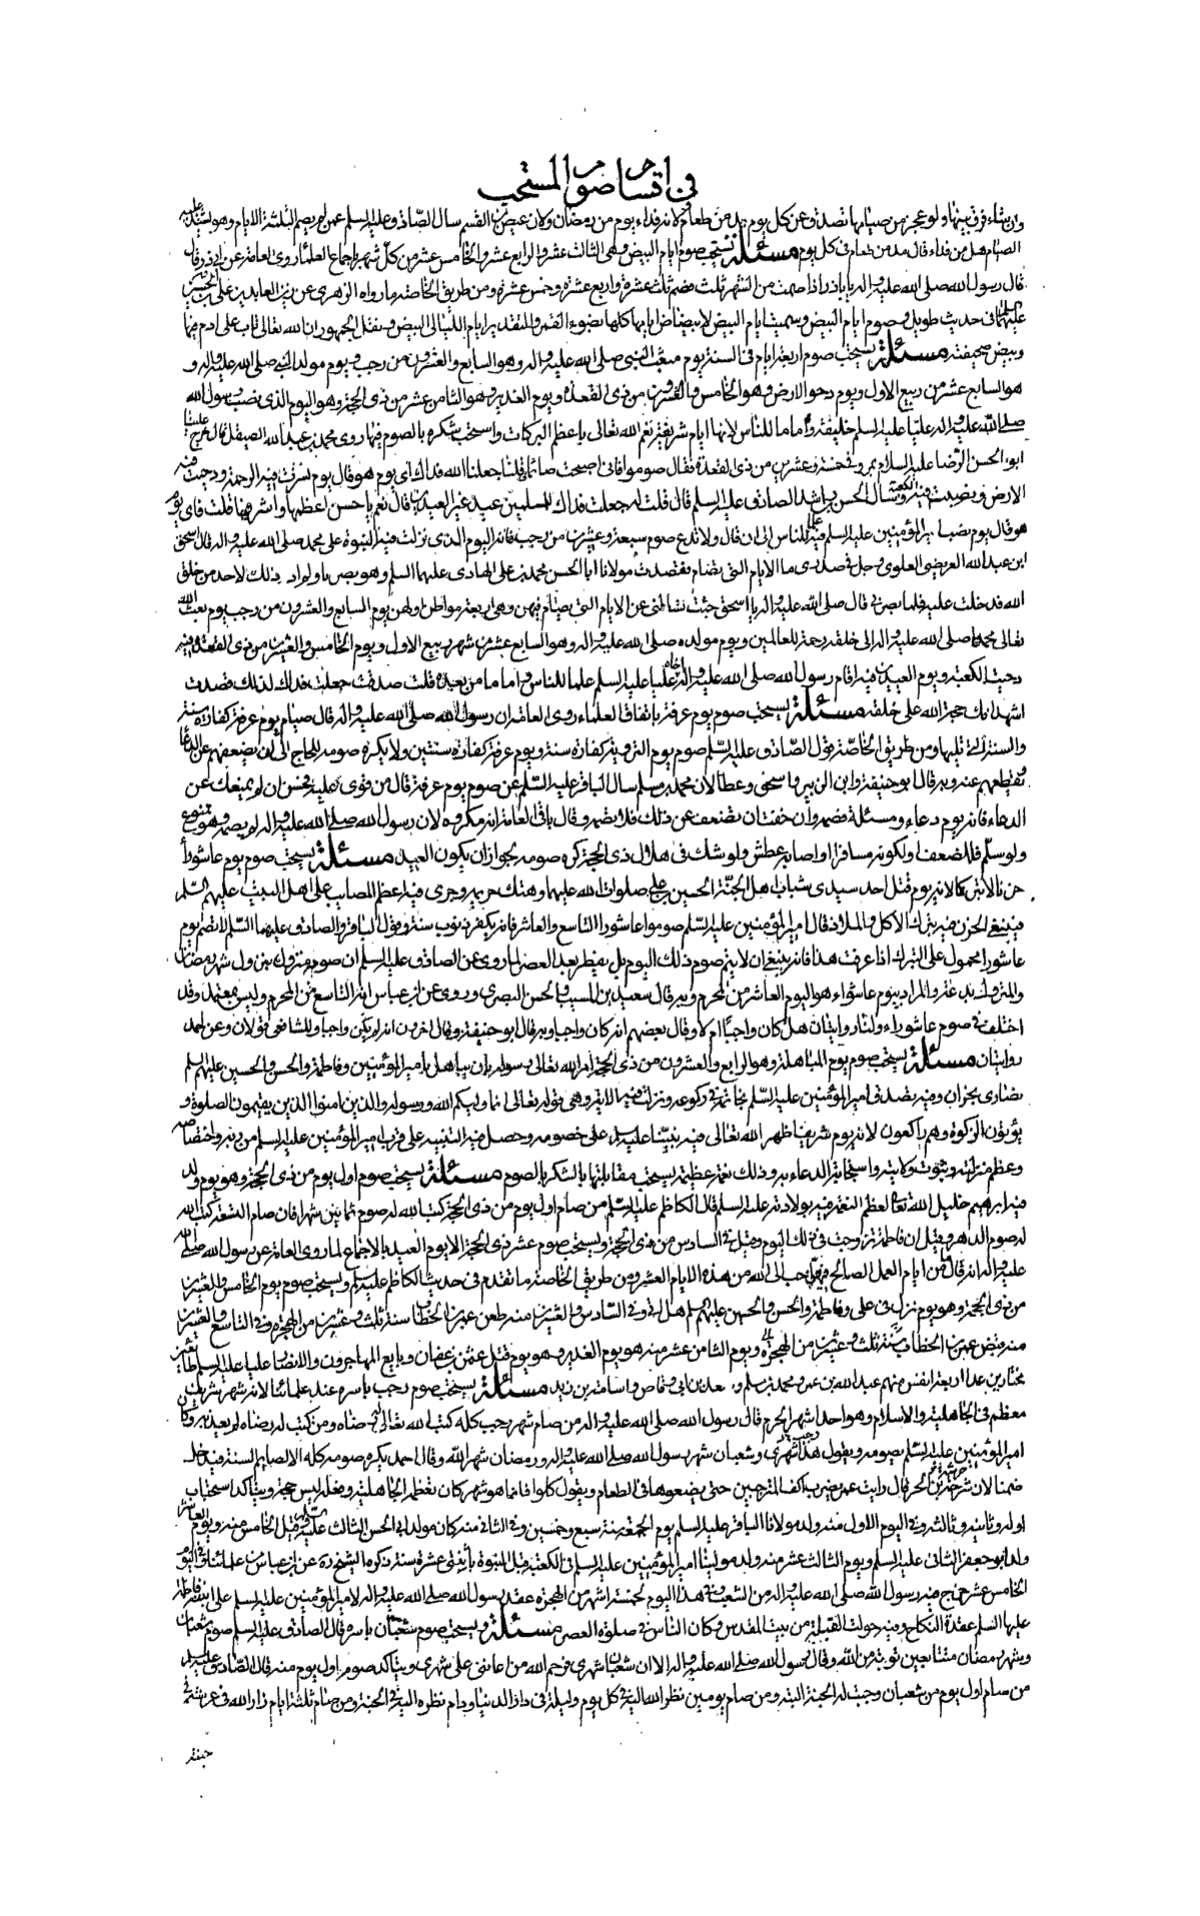 في اقسام صوم المستحب
وان شاء فرق بينها ولو عجز من صيامها تصدق عن كل يوم بمد من طعام لانه فداء يوم من رمضان ولان عيص بن القسم سال الصادق عليه السلم عمن لم يصم الثلثة الايام وهو يشتد عليه
الصيام هل من فداء قال مد من طعام في كل يوم مسئلة يستحب صوم ايام البيض وهي الثالث عشر والرابع عشر والخامس عشر من كل شهر باجماع العلماء روى العامة عن ابي ذر قال
قال رسول الله صلى الله عليه واله يا باذر اذا صمت من الشهر ثلث فصم ثلث عشرة واربع عشرة وخمس عشرة ومن طريق الخاصة ما رواه الزهري عن زين العابدين علي بن الحسين
عليهما السلم في حديث طويل وصوم ايام البيض وسميت ايام البيض لابيضاض لياليها كلها بضوء القمر والتقدير ايام الليالي البيض ونقل الجمهور ان الله تعالى تاب على ادم فيها
وبيض صحيفته مسئلة يستحب صوم اربعة ايام في السنة يوم مبعث النبي صلى الله عليه واله وهو السابع والعشرون من رجب ويوم مولد النبي صلى الله عليه واله و
هو السابع عشر من ربيع الاول ويوم دحو الارض وهو الخامس والعشرون من ذي القعدة ويوم الغدير وهو الثامن عشر من ذي الحجة وهو اليوم الذي نصب رسول الله
صلى الله عليه واله عليا عليه السلم خليفة واماما للناس لانها ايام شريفة نعم الله تعالى باعظم البركات واستحب شكره بالصوم فيها روى محمد بن عبد الله الصيقل قال خرج علينا
ابو الحسن الرضا عليه السلام بمرو في خمسة وعشرين من ذي القعدة فقال صوموا فاني اصبحت صائما قلنا جعلنا الله فداك اي يوم هو قال يوم نشرت فيه الرحمة ودحيت فيه
الارض ونصبت فيه الكعبة وسال الحسن بن راشد الصادق عليه السلم قال قلت له جعلت فداك للمسلمين عيد غير العيدين قال نعم يا حسن اعظمهما واشرفهما قلت فاي يوم
هو قال يوم نصب امير المؤمنين عليه السلم فيه علما للناس الى ان قال ولا تدع صوم سبعة وعشرين من رجب فانه اليوم الذي نزلت فيه النبوة على محمد صلى الله عليه واله قال اسحق
ابن عبد الله العريضي العلوي وجل في صدري ما الايام التي تصام فقصدت مولانا ابا الحسن محمد بن علي الهادي عليهما السلم وهو بصربا ولم ابد ذلك لاحد من خلق
الله فدخلت عليه فلما بصر بي قال صلى الله عليه واله يا اسحق جئت تسالني عن الايام التي يصام فيهن وهي اربعة مواطن اولهن يوم السابع والعشرون من رجب يوم بعث الله
تعالى محمدا صلى الله عليه واله الى خلقه رحمة للعالمين ويوم مولده صلى الله عليه واله وهو السابع عشر من شهر ربيع الاول ويوم الخامس والعشرين من ذي القعدة فيه
دحيت الكعبة ويوم الغدير فيه اقام رسول الله صلى الله عليه واله اخاه عليا عليه السلم علما للناس واماما من بعده قلت صدقت جعلت فداك لذلك قصدت
اشهد انك حجة الله على خلقه مسئلة يستحب صوم يوم عرفة باتفاق العلماء روى العامة ان رسول الله صلى الله عليه واله قال صيام يوم عرفة كفارة سنة
والسنة التي تليها ومن طريق الخاصة قول الصادق عليه السلم صوم يوم التروية كفارة سنة ويوم عرفة كفارة سنتين ولا يكره صومه للحاج الا ان يضعفهم عن الدعا
ويقطعهم عنه وبه قال ابو حنيفة وابن الزبير واسحق وعطا لان محمد بن مسلم سال الباقر عليه السلم عن صوم يوم عرفة قال من قوى عليه فحسن ان لم يمنعك عن
الدعاء فانه يوم دعاء ومسئلة فصمه وان خفت ان تضعف عن ذلك فلا تصمه وقال باقي العامة انه مكروه لان رسول الله صلى الله عليه واله لم يصمه وهو ممنوع
ولو سلم فللضعف او لكونه مسافرا او اصابه عطش ولو شك في هلال ذي الحجة كره صومه لجواز ان يكون العيد مسئلة يستحب صوم يوم عاشورا
حزنا لا تبركا لانه يوم قتل احد سيدي شباب اهل الجنة الحسين بن علي صلوات الله عليهما وهتك حريمه وجرى فيه اعظم المصايب على اهل البيت عليهم السلم
فينبغي الحزن فيه بترك الاكل والملاذ قال امير المؤمنين عليه السلم صوموا عاشورا التاسع والعاشر فانه يكفر ذنوب سنة وقول الباقر والصادق عليهما السلم لا تصم يوم
عاشورا محمول على التبرك اذا عرفت هذا فانه ينبغي ان لا يتم صوم ذلك اليوم بل يفطر بعد العصر لما روى عن الصادق عليه السلم ان صومه متروك بنزول شهر رمضان
والمتروك بدعة والمراد بيوم عاشوراء هو اليوم العاشر من المحرم وبه قال سعيد بن المسيب والحسن البصري وروى عن ابن عباس انه التاسع من المحرم وليس بمعتمد وقد
اختلف في صوم عاشوراء ولنا روايتان هل كان واجبا ام لا وقال بعضهم انه كان واجبا وبه قال ابو حنيفة وقال اخرون انه لم يكن واجبا وللشافعي قولان وعن احمد
روايتان مسئلة يستحب صوم يوم المباهلة وهو الرابع والعشرون من ذي الحجة امر الله تعالى رسوله بان يباهل بامير المؤمنين وفاطمة والحسن والحسين عليهم السلم
نصارى نجران وفيه تصدق امير المؤمنين عليه السلم بخاتمه في ركوعه ونزلت فيه الاية وهي قوله تعالى انما وليكم الله ورسوله والذين امنوا الذين يقيمون الصلوة و
يؤتون الزكوة وهم راكعون لانه يوم شريف اظهر الله تعالى فيه نبينا عليه السلم على خصومه وحصل فيه التنبيه على قرب امير المؤمنين عليه السلم من ربه واختصاصه
وعظم منزلته وثبوت ولايته واستجابة الدعاء به وذلك نعمة عظيمة يستحب مقابلتها بالشكر بالصوم مسئلة يستحب صوم اول يوم من ذي الحجة وهو يوم ولد
فيه ابرهيم خليل الله تعالى لعظم النعمة فيه بولادته عليه السلم قال الكاظم عليه السلم من صام اول يوم من ذي الحجة كتب الله له صوم ثمانين شهرا فان صام التسعة كتب الله
له صوم الدهر وقيل ان فاطمة تزوجت في ذلك اليوم وقيل في السادس من ذي الحجة ويستحب صوم عشر ذي الحجة الا يوم العيد بالاجماع لما روى العامة عن رسول الله صلى الله
عليه واله انه قال ما من ايام العمل الصالح فيهن احب الى الله من هذه الايام العشر ومن طريق الخاصة ما تقدم في حديث الكاظم عليه السلم ويستحب صوم يوم الخامس والعشرين
من ذي الحجة وهو يوم نزل في علي وفاطمة والحسن والحسين عليهم السلم هل اتى وفي السادس والعشرين منه طعن عمر بن الخطاب سنة ثلث وعشرين من الهجرة وفي التاسع والعشرين
منه قبض عمر بن الخطاب سنة ثلث وعشرين من الهجرة ويوم الثامن عشر منه هو يوم الغدير وهو يوم قتل عثمن بن عفان وبايع المهاجرون والانصار عليا عليه السلم طائعين
مختارين عدا اربعة انفس منهم عبد الله بن عمر ومحمد بن مسلم وسعد بن ابي وقاص واسامة بن زيد مسئلة يستحب صوم رجب باسره عند علمائنا لانه شهر شريف
معظم في الجاهلية والاسلام وهو احد اشهر الحرم قال رسول الله صلى الله عليه واله من صام شهر رجب كله كتب الله تعالى له رضاه ومن كتب له رضاه لم يعذبه وكان
امير المؤمنين عليه السلم يصومه ويقول رجب شهري وشعبان شهر رسول الله صلى الله عليه واله ورمضان شهر الله وقال احمد يكره صومه كله الا لصائم السنة فيدخل
ضمنا لان خرشة بن الحر قال رايت عمر يضرب اكف المترجبين حتى يضعوها في الطعام ويقول كلوا فانما هو شهر كان تعظمه الجاهلية وفعله ليس حجة ويتاكد استحباب
اوله وثانيه وثالثه وفي اليوم الاول منه ولد مولانا الباقر عليه السلم يوم الجمعة سنة سبع وخمسين وفي الثاني منه كان مولد ابي الحسن الثالث عليه السلم وقيل الخامس منه ويوم العاشر
ولد ابو جعفر الثاني عليه السلم ويوم الثالث عشر منه ولد مولينا امير المؤمنين عليه السلم في الكعبة قبل النبوة باثنتي عشرة سنة ذكره الشيخ ره عن ابن عباس من علمائنا وفي اليوم
الخامس عشر خرج فيه رسول الله صلى الله عليه واله من الشعب وفي هذا اليوم لخمسة اشهر من الهجرة عقد رسول الله صلى الله عليه واله لامير المؤمنين عليه السلم على ابنته فاطمة
عليها السلم عقدة النكاح وفيه حولت القبلة من بيت المقدس وكان الناس في صلوة العصر مسئلة ويستحب صوم شعبان باسره قال الصادق عليه السلم صوم شعبان
وشهر رمضان متتابعين توبة من الله وقال رسول الله صلى الله عليه واله الا ان شعبان شهري فرحم الله من اعانني على شهري ويتاكد صوم اول يوم منه قال الصادق عليه السلم
من صام اول يوم من شعبان وجبت له الجنة البتة ومن صام يومين نظر الله اليه في كل يوم وليلة في دار الدنيا ودام نظره اليه في الجنة ومن صام ثلثة ايام زار الله في عرشه في
جنته